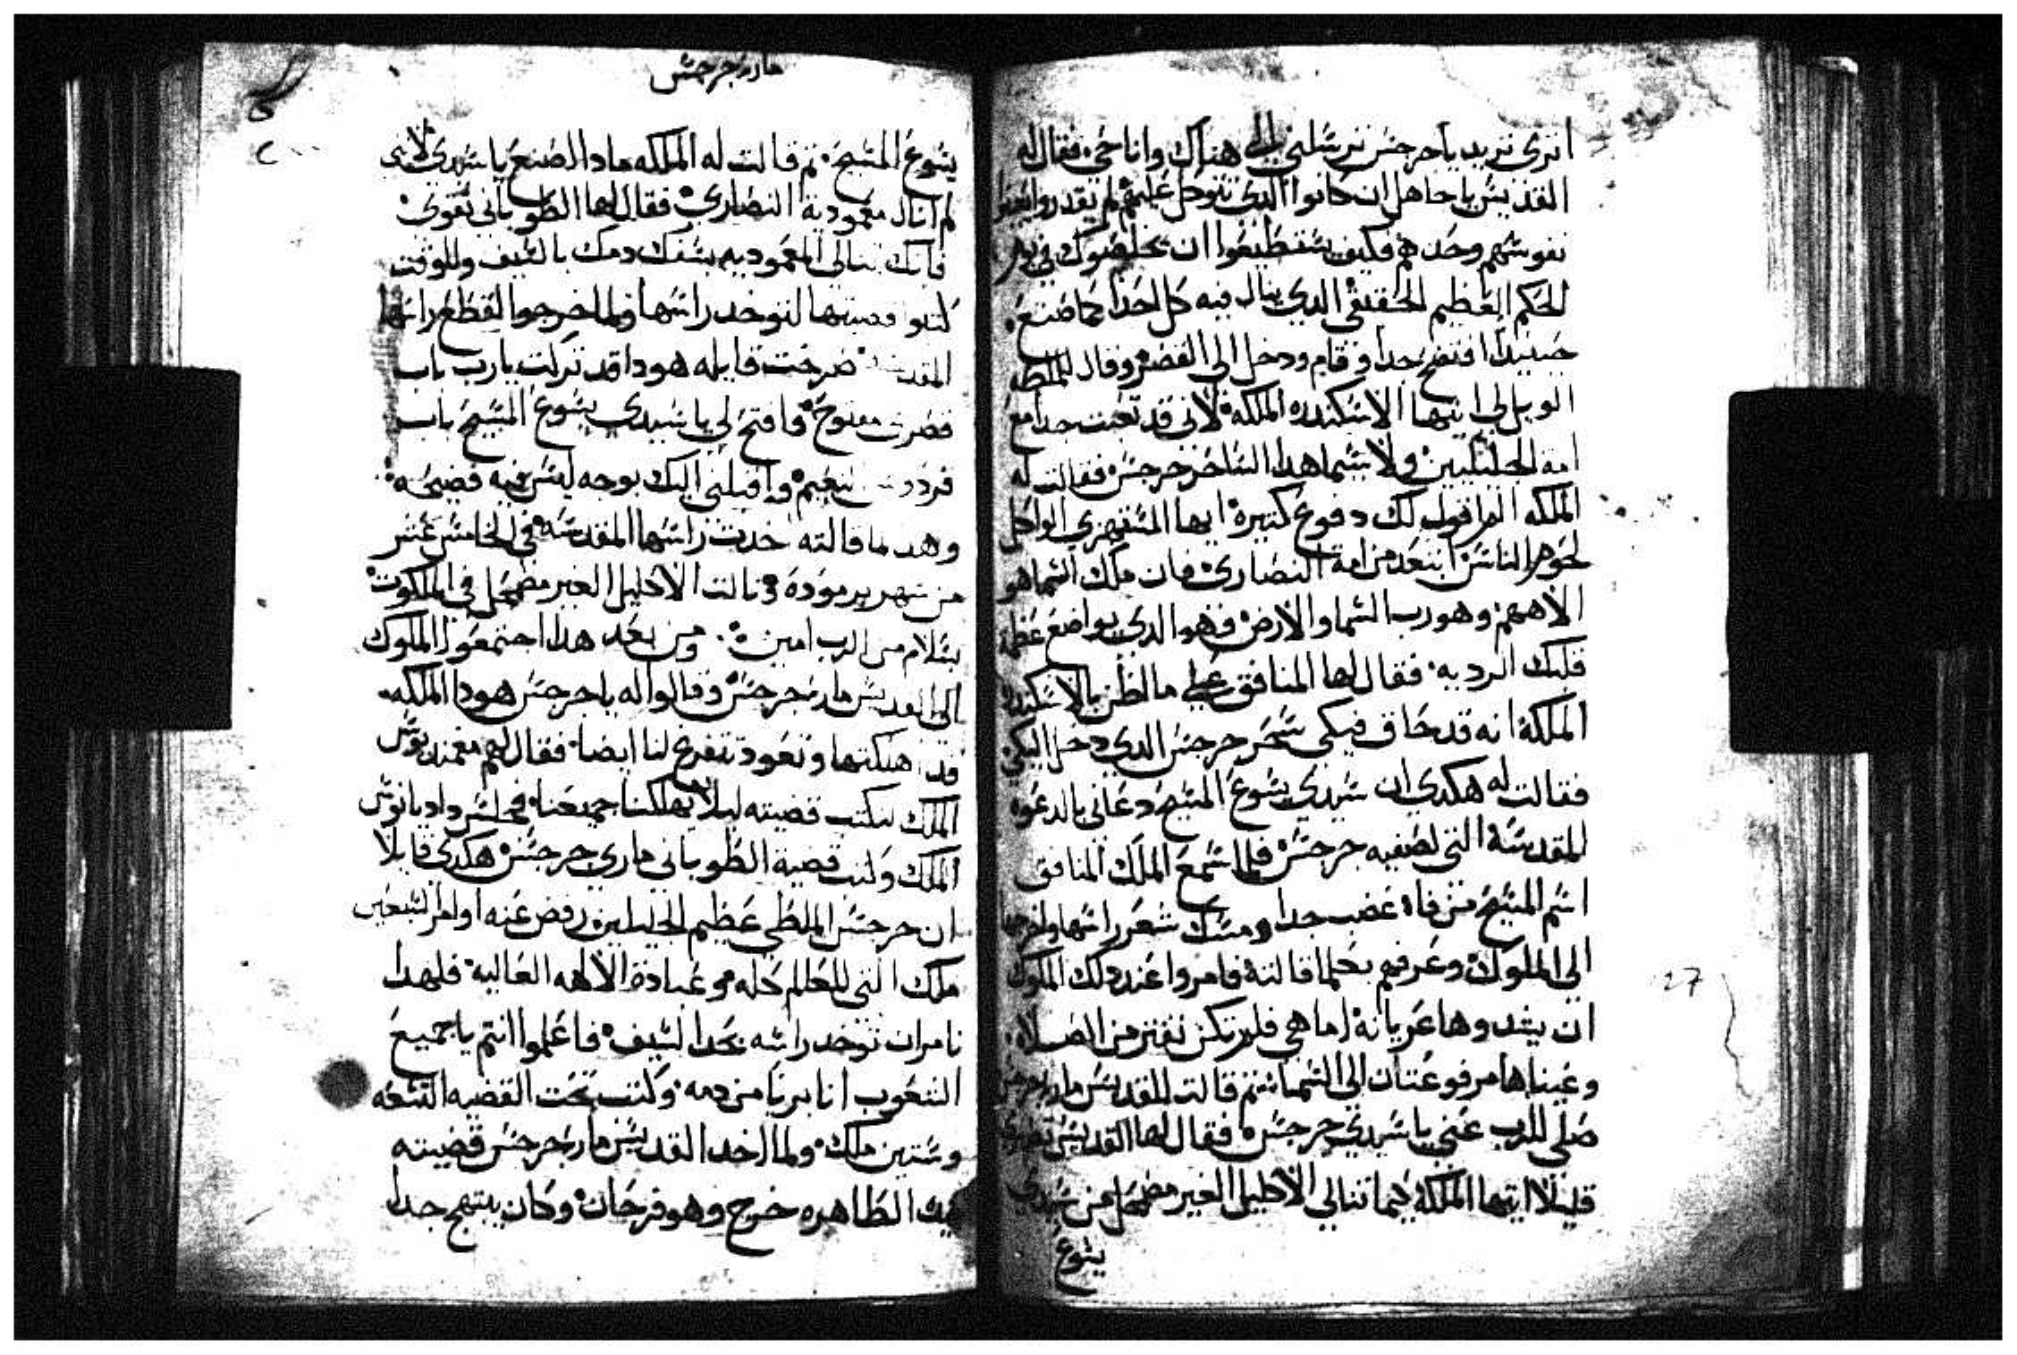 اترى تريد ياجرجس ترسلني الى هناك وانا حي فقال له
القديس ياجاهل ان كانوا الذي تتوكل عليهم لم يقدروا
نفوسهم وحدهم فكيف يستطيعوا ان يخلصوك في يوم
الحكم العظيم الحقيقي الذي ينال فيه كل احدا كما صنع
حينيدا افتضح جدا وقام ودخل الى القصر وقال للملكه
الويل لي ايتها الاسكندره الملكه لاني قد تعبت جدا مع
امة الجليليين ولا سيما هدا الساحر جرجس فقالت له
الملكه الم اقول لك دفوع كتيرة ايها المستهزي الواكل
لحوم الناس ابتعد من امة النصارى فان ملك السما هو
الاههم وهو رب السما والارض فهوا الدي يواضع عظمة
قلبك الرديه فقال لها المنافق علي ما اظن يا لاسكندره
الملكة انه قد حاق فيكي سحر جرجس الدي دخل اليكي
فقالت له هكدي ان سيدي يسوع المسيح دعاني بالدعوه
المقدسة التي لصفيه جرجس فلما سمع الملك المنافق
اسم المسيح من فاه غضب جدا ومسك شعر راسها واخرجها
الى الملوك وعرفهم بكلما قالته فامروا عند دلك الملوك
ان يشدوها عريانة اما هي فلم تكن تفتر من الصلاه
وعيناها مرفوعتان الى السما تم قالت للقديس مار جرجس
صلي للرب عني ياسيدي جرجس فقال لها القديس تصبري
قليلا ايتها الملكة كيما تنالي الاكليل الغير مضمحل من سيدي
يسوع
مار جرجس
يسوع المسيح تم قالت له الملكه مادا اصنع يا سيدي لانني
لم انال معمودية النصارى فقال لها الطوباني تقوي
فانك تنالي المعموديه بسفك دمك بالسيف وللوقت
كتبوا قضيتها لتوخد راسها ولما اخرجوا لقطع راسها
المقدسة صرخت قايله هودا قد تركت يارب باب
قصري مفتوح فافتح لي يا سيدي يسوع المسيح باب
فردوس النعيم واقبلني اليك بوجه ليس فيه فضيحه
وهدا ما قالته اخدت راسها المقدسه في الخامس عشر
من شهر برموده ونالت الاكليل الغير مضمحل في الملكوت
بسلام من الرب امين ومن بعد هدا اجتمعوا الملوك
الى القديس مار جرجس وقالوا له ياجرجس هودا الملكه
قد اهلكتها وتعود تتفرغ لنا ايضا فقال لهم مغمنديوس
الملك نكتب قضيته ليلا يهلكنا جميعنا فجلس داديانوس
الملك وكتب قضية الطوباني ماري جرجس هكدى قايلا
ان جرجس الملطي عظيم الجليليين رفض عنه اوامر السبعين
ملك التي للعالم كله وعبادة الالهه العاليه فلهدا
نامر ان توخد راسه بحد السيف فاعلموا انتم ياجميع
الشعوب انا بريا من دمه وكتب تحت القضيه التسعه
وستين ملك ولما اخدا القديس مار جرجس قضيته
الطاهره خرج وهو فرحان وكان يبتهج جدا
27